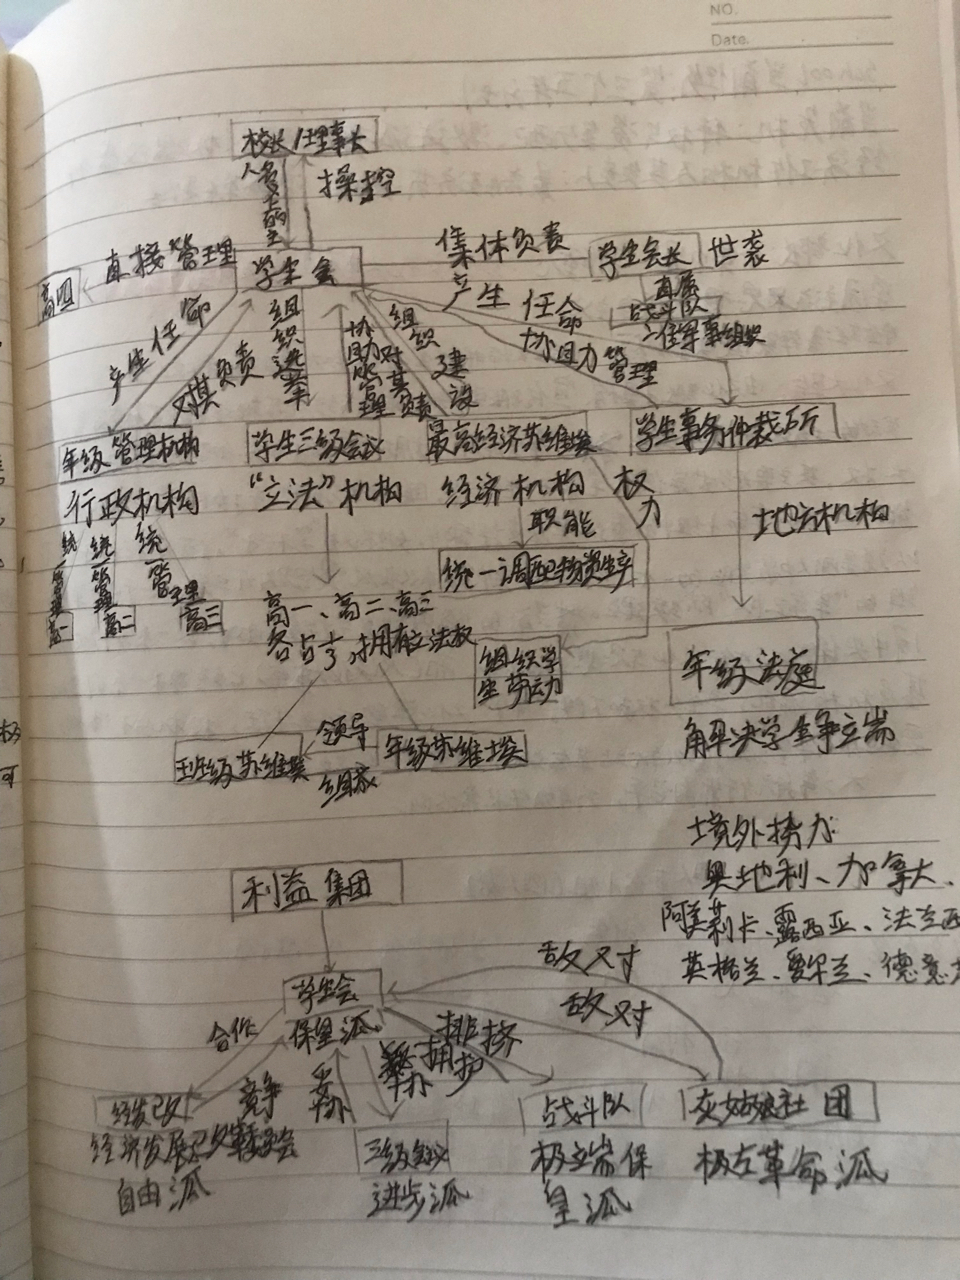 NO.
Date.
校长/理事长
名义上的主人
操控
直接管理
高四
学生会
集体负责
学生会长 世袭
直属
战斗队
准军事组织
产生 任命
产生任命
对其负责
组织选举
协助管理
组织建设
对其负责
协助管理
年级管理机构
行政机构
学生三级会议
“立法”机构
最高经济苏维埃
经济机构
学生事务仲裁所
地方机构
权力
职能
统一管理
统一管理
统一管理
高一
高二
高三
统一调配物资生产
高一、高二、高三
各占⅓,拥有立法权
组织学
生劳动
年级法庭
解决学生争端
班级苏维埃
领导
组成
年级苏维埃
境外势力
奥地利、加拿大、
阿美莉卡、露西亚、法兰西
英格兰、爱尔兰、德意志
利益集团
学生会
保皇派
敌对
敌对
合作
竞争
妥协
排挤
拥护
经发改
经济发展改革委员会
自由派
三级会议
进步派
战斗队
极端保
皇派
灰姑娘社团
极左革命派